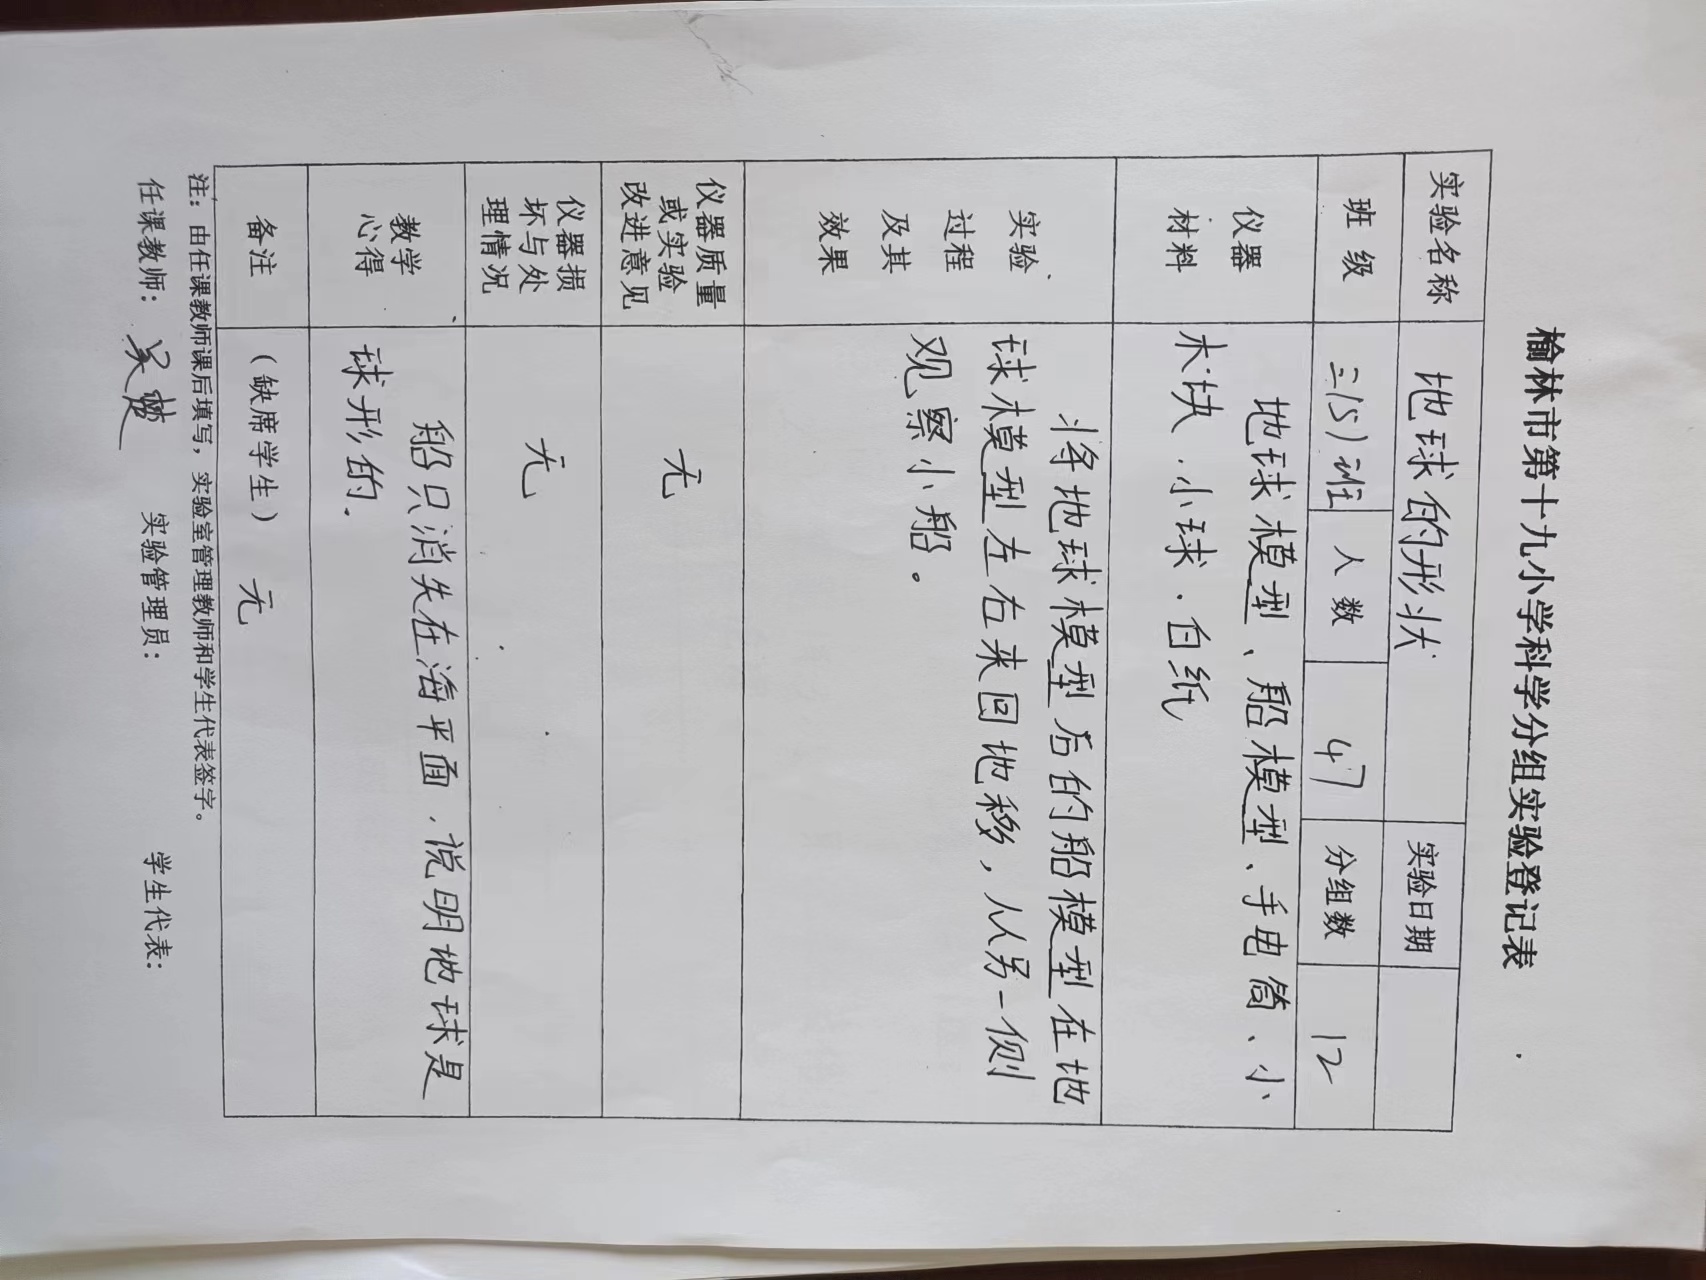 榆林市第十九小学科学分组实验登记表
实验名称 地球的形状 实验日期
班 级 三(5)班 人 数 47 分组数 12
仪器
材料
地球模型、船模型、手电筒、小
木块、小球、白纸
实验
过程
及其
效果
将地球模型后的船模型在地
球模型左右来回地移，从另一侧
观察小船。
仪器质量
或实验
改进意见
无
仪器损
坏与处
理情况
无
教学
心得
船只消失在海平面，说明地球是
球形的.
备注 （缺席学生） 无
注：由任课教师课后填写，实验室管理教师和学生代表签字。
任课教师： 实验管理员： 学生代表：